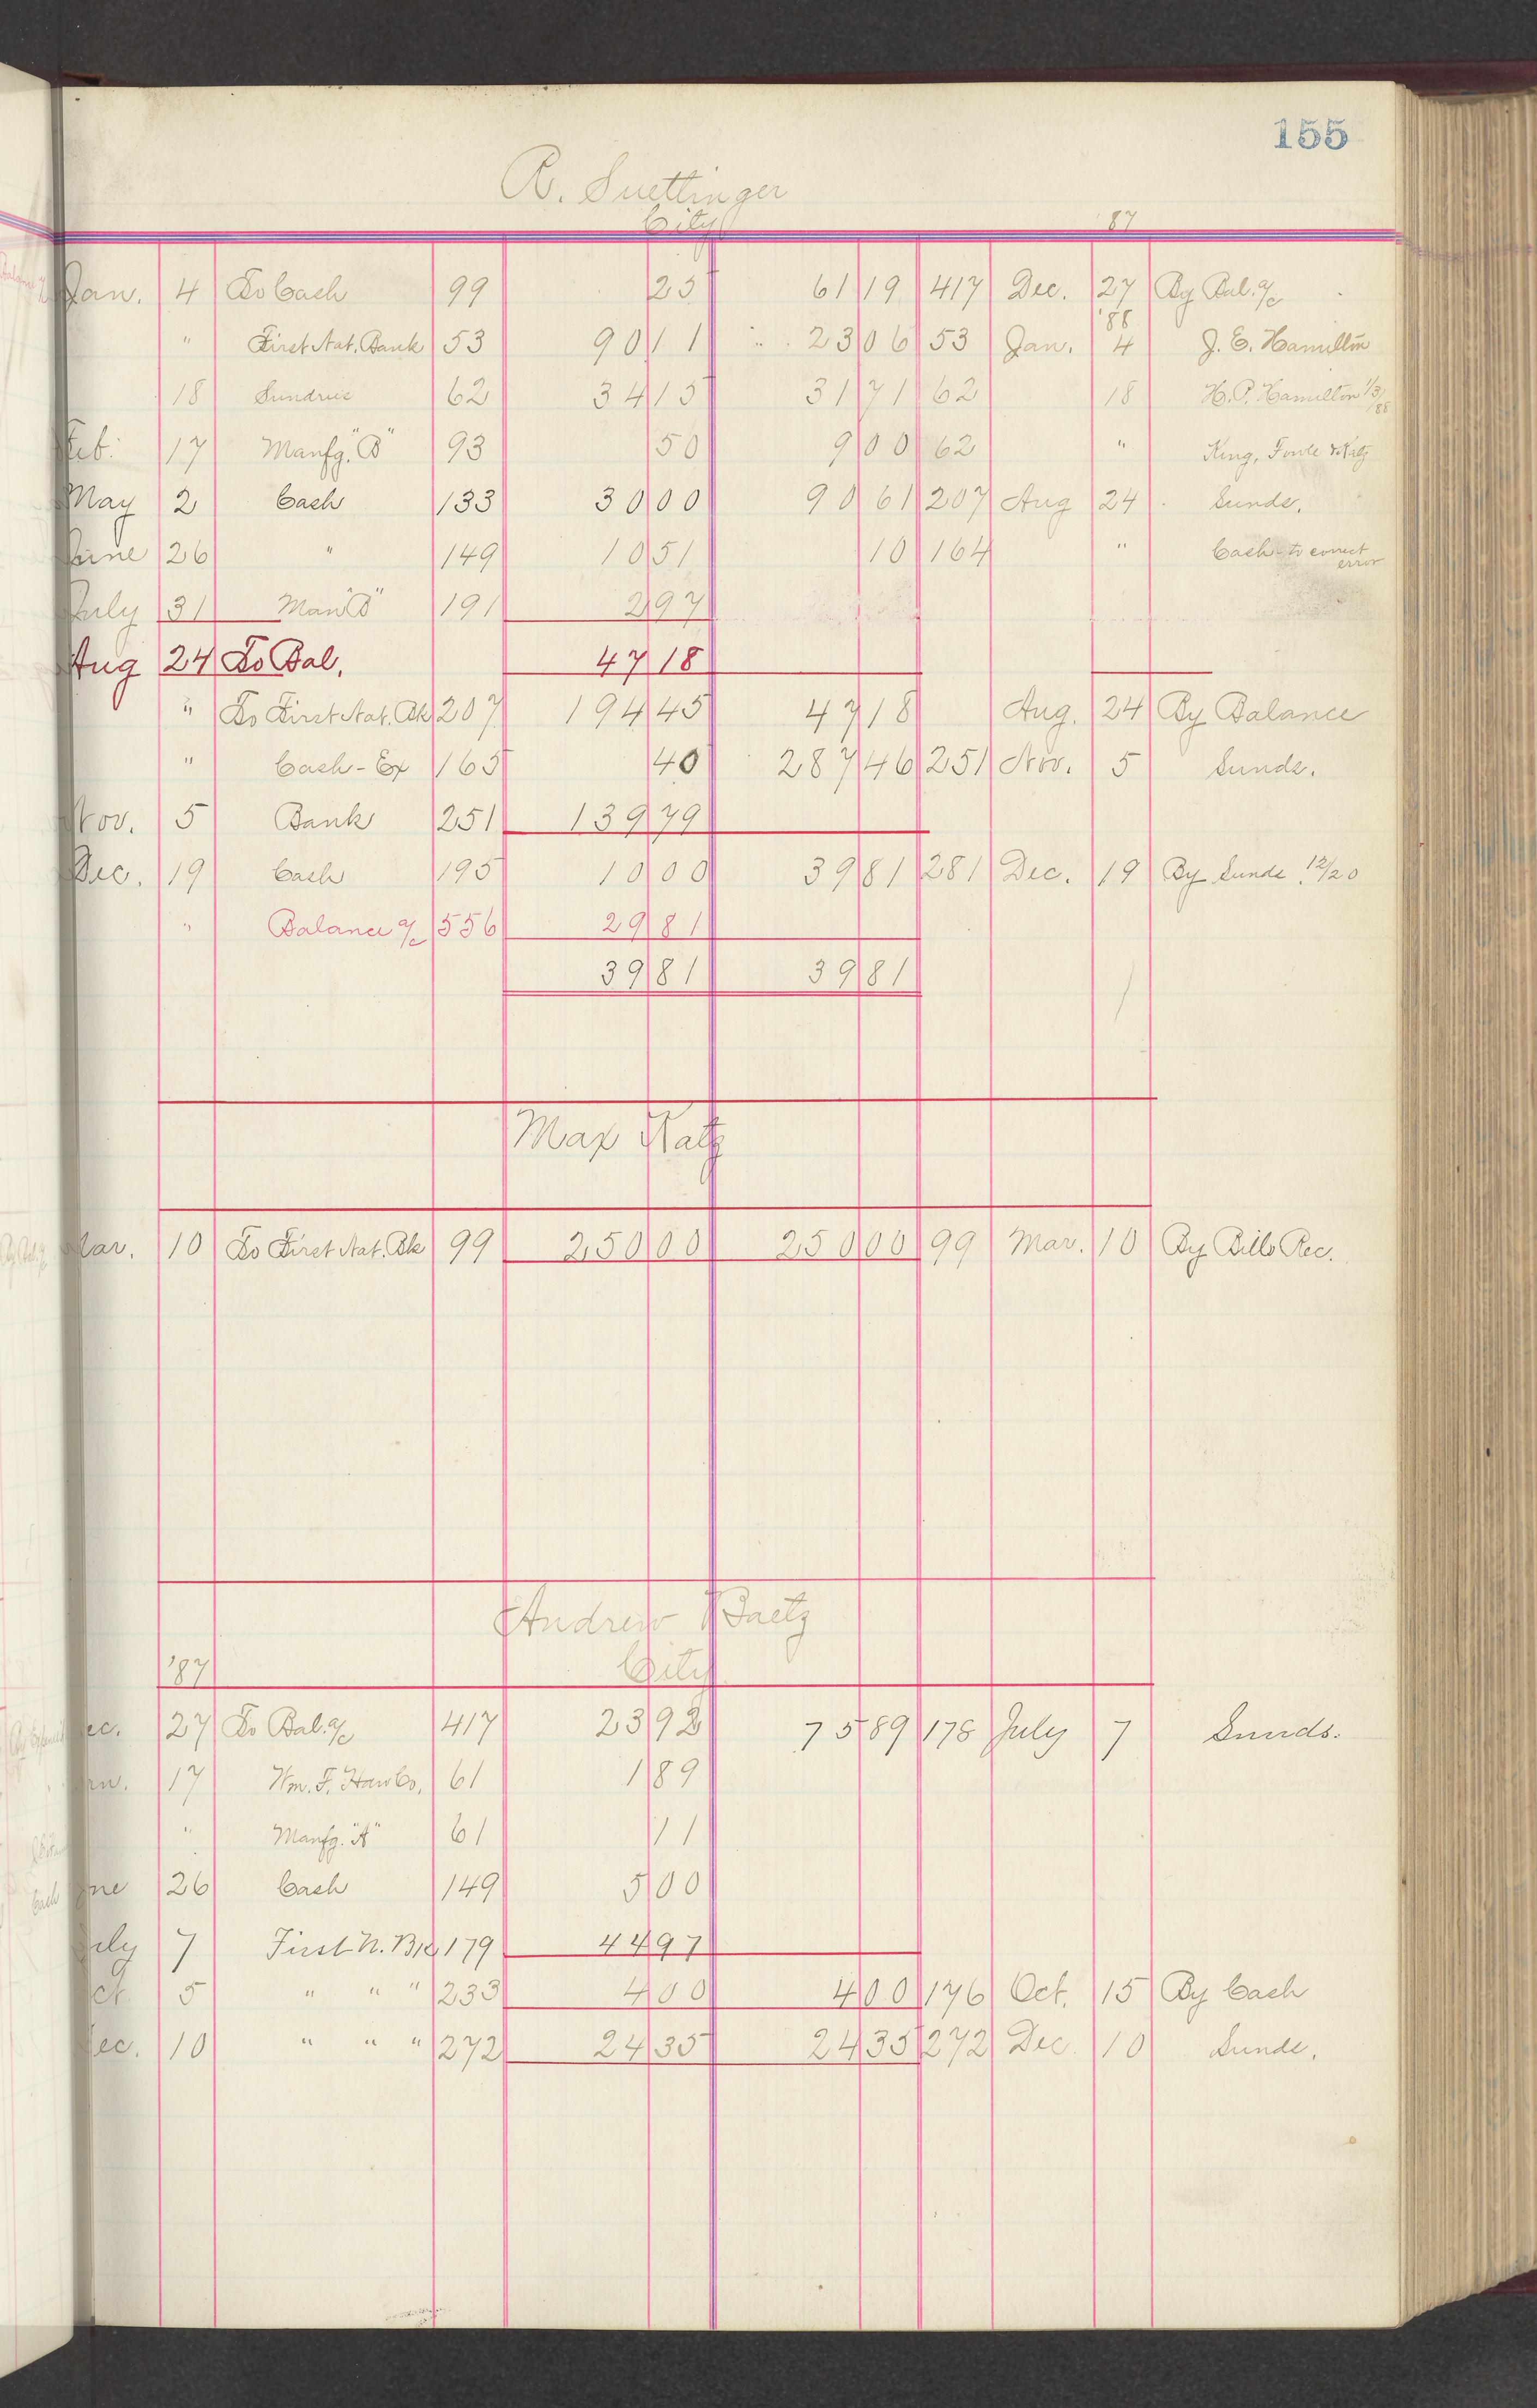 155
R. Suettinger
City
87
Jan. 4 To Cash 99 25 61 19 417 Dec. 27 By Bal. a/c
" First Nat. Bank 53 90 11 23 06 53 Jan. '88 4 J. E. Hamilton
18 Sundries 62 34 15 31 71 62 18 H. P. Hamilton 1/3/88
Feb. 17 Manfg. "B" 93 50 9 00 62 " King, Fowle & Katz
May 2 Cash 133 30 00 90 61 207 Aug 24 Sunds.
June 26 " 149 10 51 10 164 " Cash - to correct error
July 31 Man "B" 191 2 97
Aug 24 To Bal. 47 18
" To First Nat. Bk 207 194 45 47 18 Aug. 24 By Balance
" Cash - Ex 165 40 287 46 251 Nov. 5 Sunds.
Nov. 5 Bank 251 139 79
Dec. 19 Cash 195 10 00 39 81 281 Dec. 19 By Sunds. 12/20
" Balance a/c 556 29 81
39 81 39 81
Max Katz
Mar. 10 To First Nat. Bk 99 250 00 250 00 99 Mar. 10 By Bills Rec.
Andrew Baetz
'87 City
ec. 27 To Bal. a/c 417 23 92 75 89 178 July 7 Sunds.
an. 17 Wm. F. Haw Co. 61 1 89
" Manfg. "A" 61 11
une 26 Cash 149 5 00
uly 7 First N. Bk 179 44 97
ct 5 " " " 233 4 00 4 00 176 Oct. 15 By Cash
ec. 10 " " " 272 24 35 24 35 272 Dec 10 Sunds.